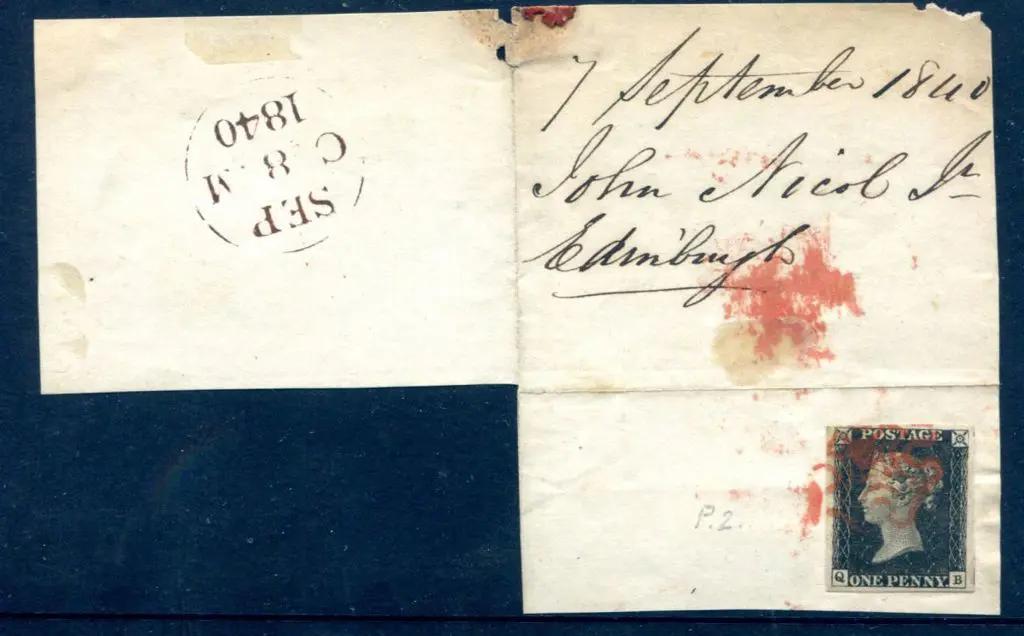 7 September 1840
John Nicol Jr
Edinburgh
SEP
C 8 M
1840
P.2.
POSTAGE
Q ONE PENNY. B